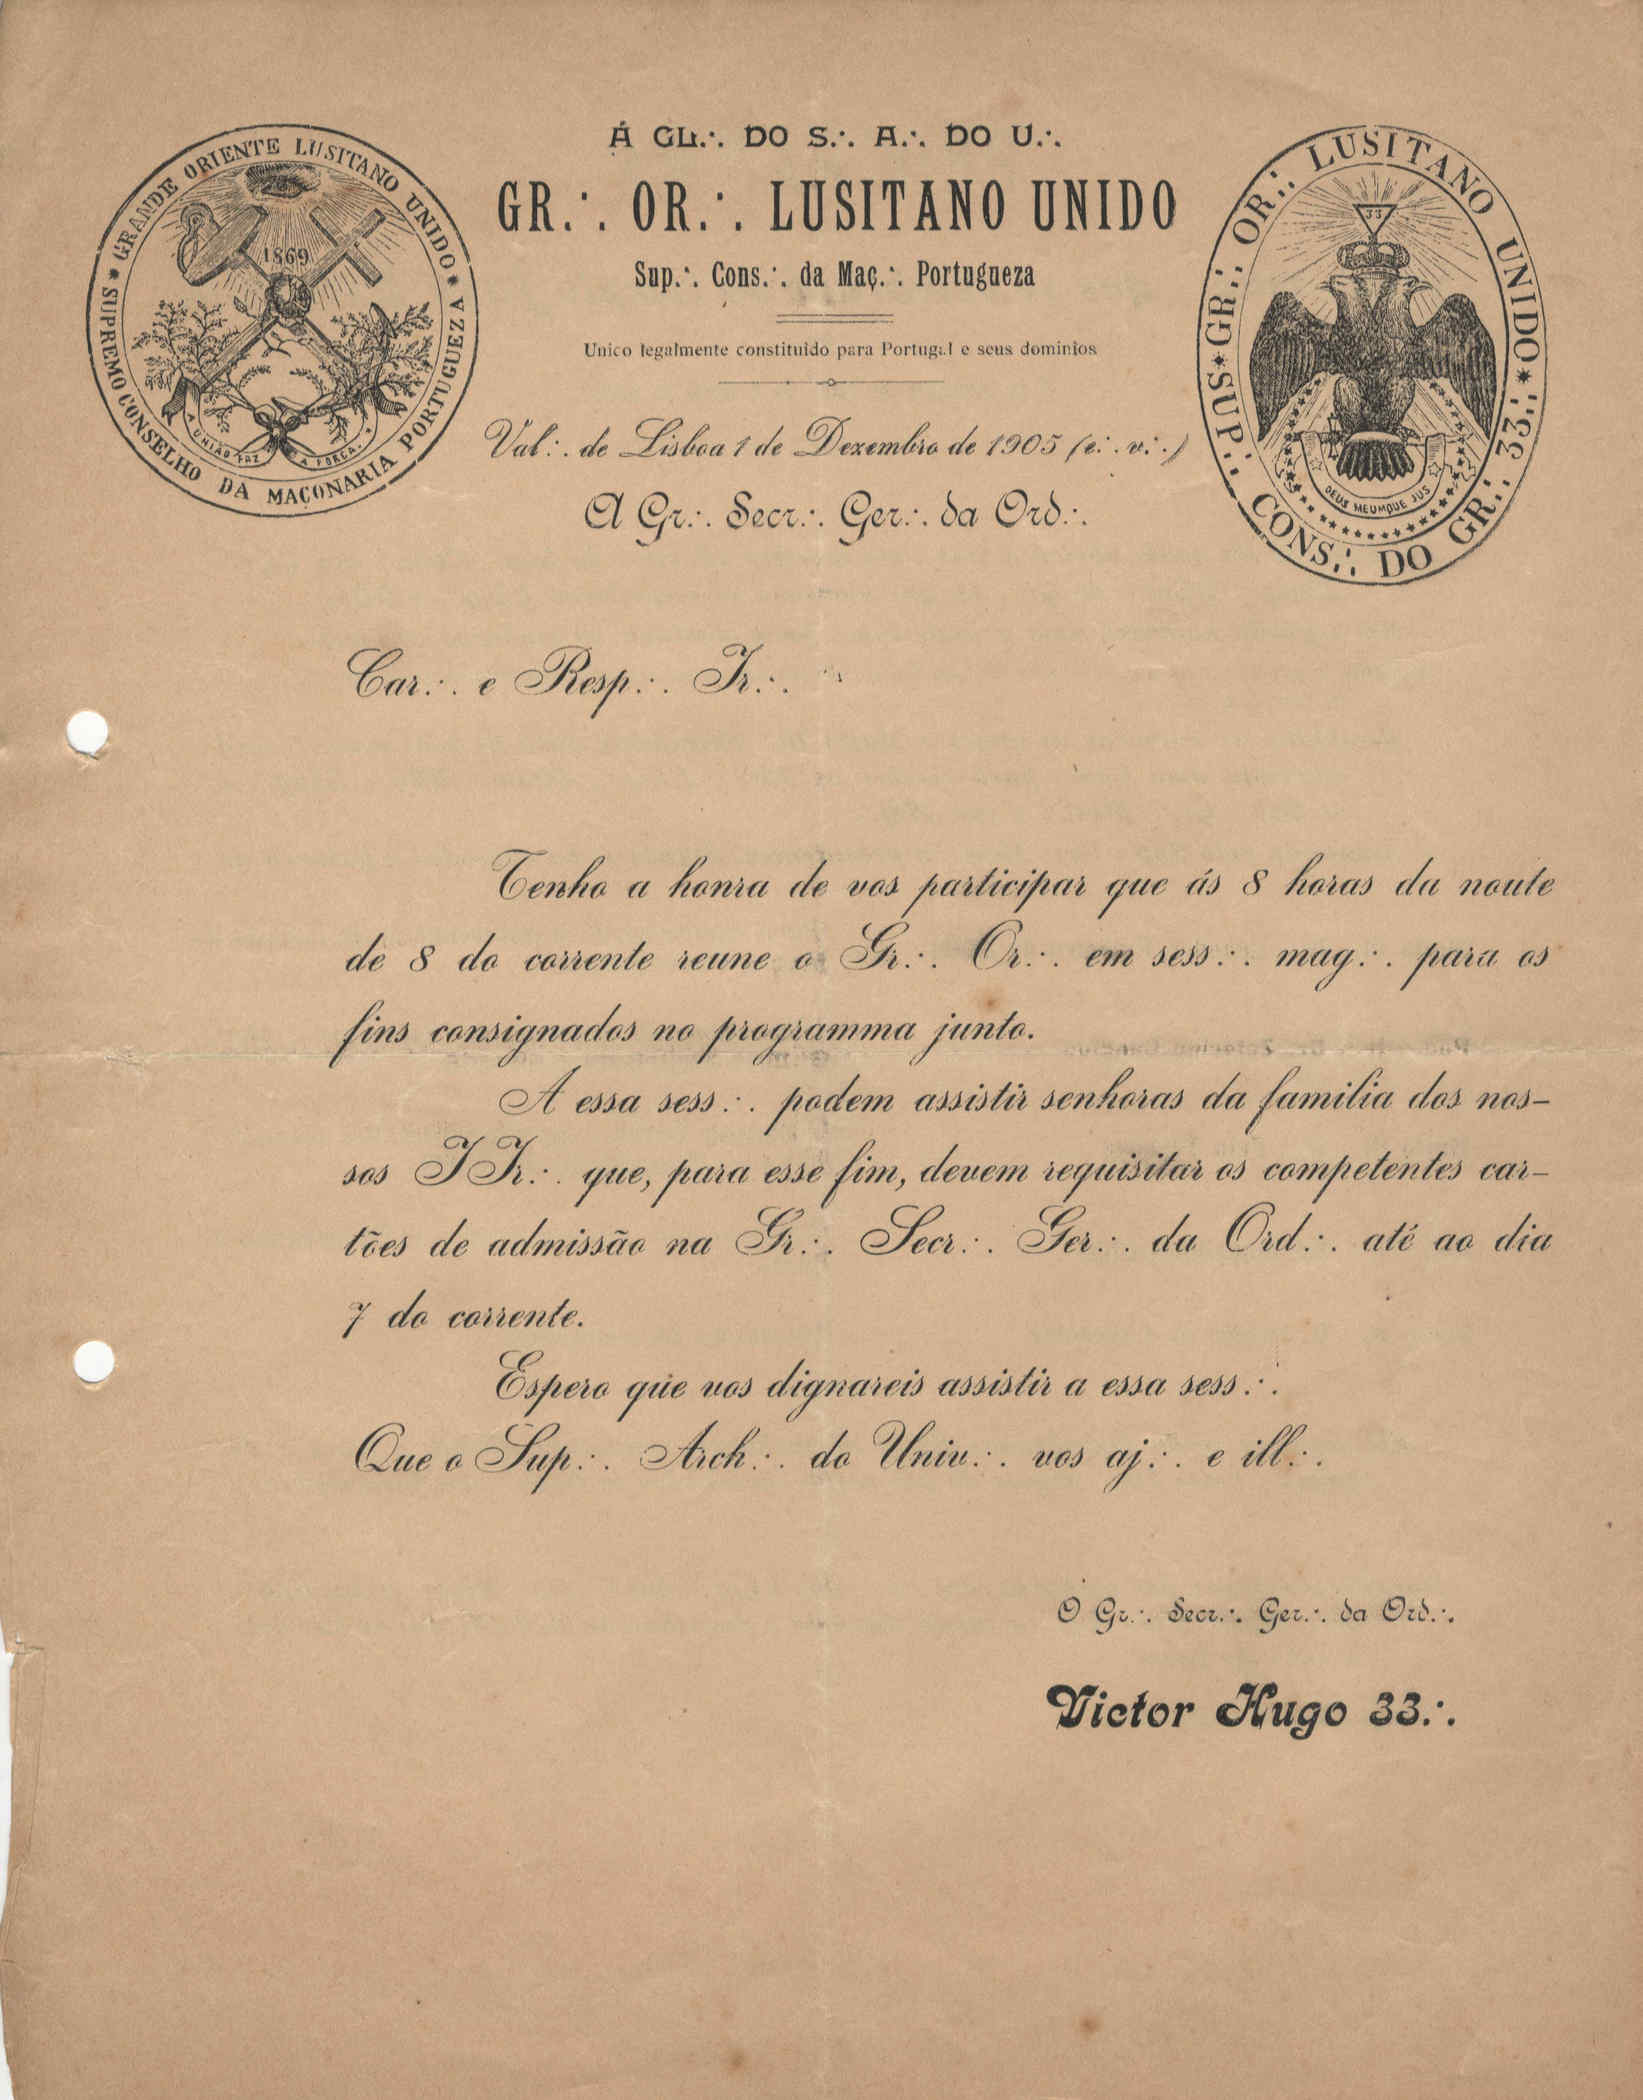 Á GL.·. DO S.·. A.·. DO U.·.
GR.·. OR.·. LUSITANO UNIDO
Sup.·. Cons.·. da Maç.·. Portugueza
Unico legalmente constituido para Portugal e seus dominios
Val.·. de Lisboa 1 de Dezembro de 1905 (e.·. v.·.)
A Gr.·. Secr.·. Ger.·. da Ord.·.
* GRANDE ORIENTE LUSITANO UNIDO *
SUPREMO CONSELHO DA MAÇONARIA PORTUGUEZA
1869
A UNIÃO FAZ A FORÇA
SUP.·. CONS.·. DO GR.·. 33.·. * GR.·. OR.·. LUSITANO UNIDO *
33
DEUS MEUMQUE JUS
Car.·. e Resp.·. Ir.·.
Tenho a honra de vos participar que ás 8 horas da noute
de 8 do corrente reune o Gr.·. Or.·. em sess.·. mag.·. para os
fins consignados no programma junto.
A essa sess.·. podem assistir senhoras da familia dos nos-
sos IIr.·. que, para esse fim, devem requisitar os competentes car-
tões de admissão na Gr.·. Secr.·. Ger.·. da Ord.·. até ao dia
7 do corrente.
Espero que vos dignareis assistir a essa sess.·.
Que o Sup.·. Arch.·. do Univ.·. vos aj.·. e ill.·.
O Gr.·. Secr.·. Ger.·. da Ord.·.
Victor Hugo 33.·.